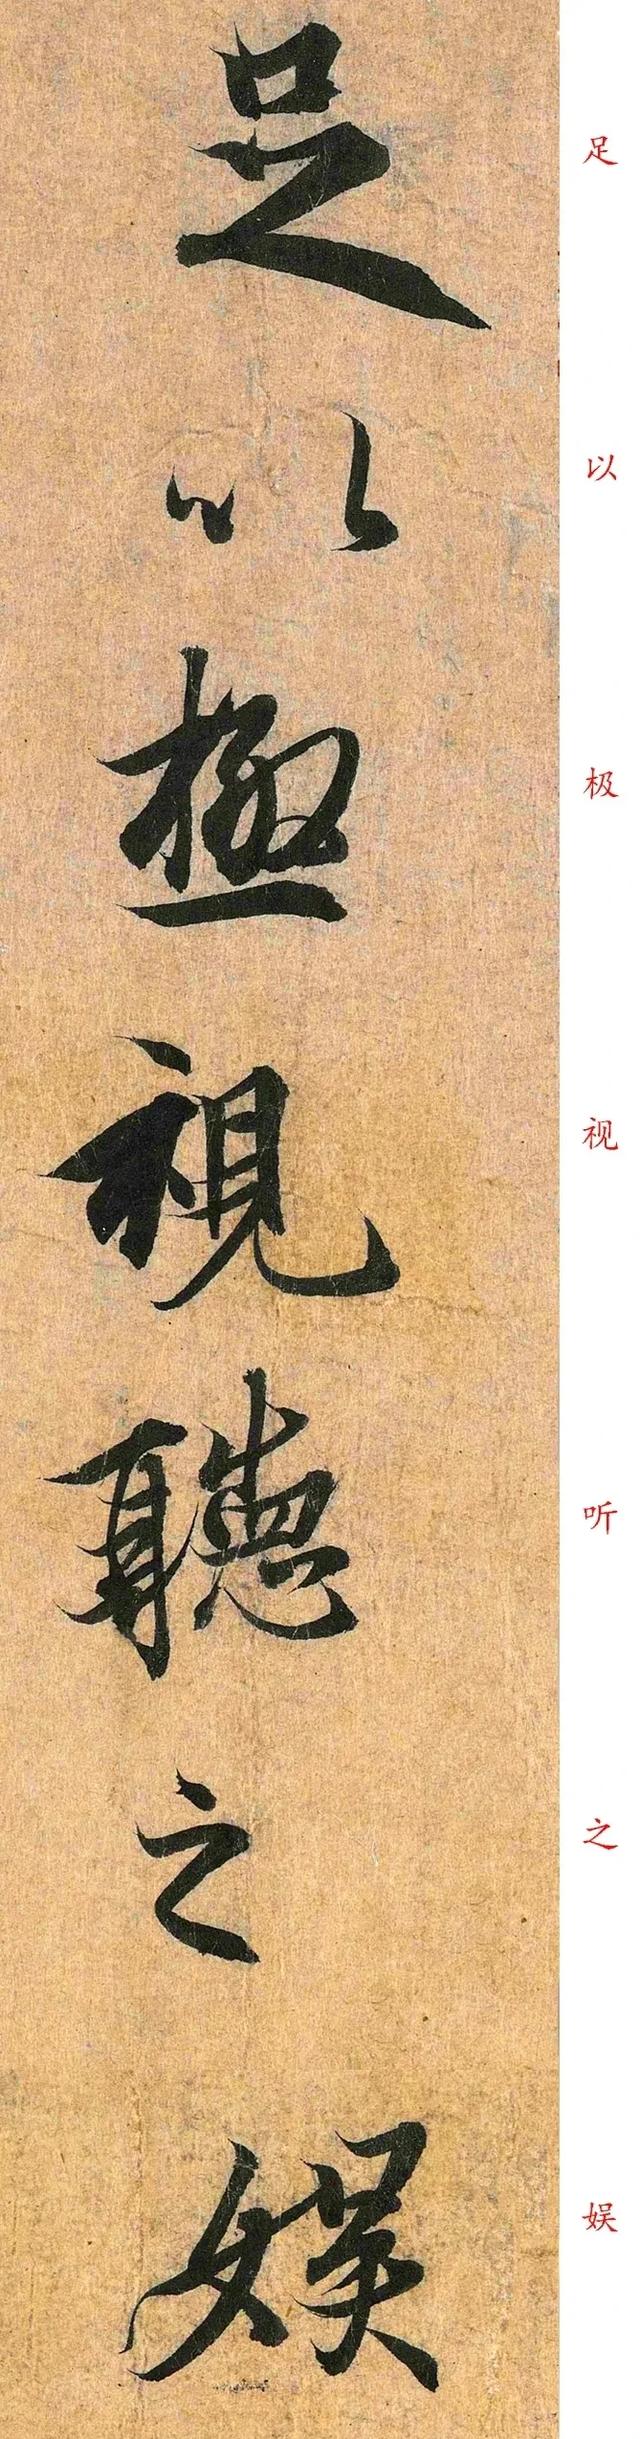 足以極視聽之娱
足
以
极
视
听
之
娱